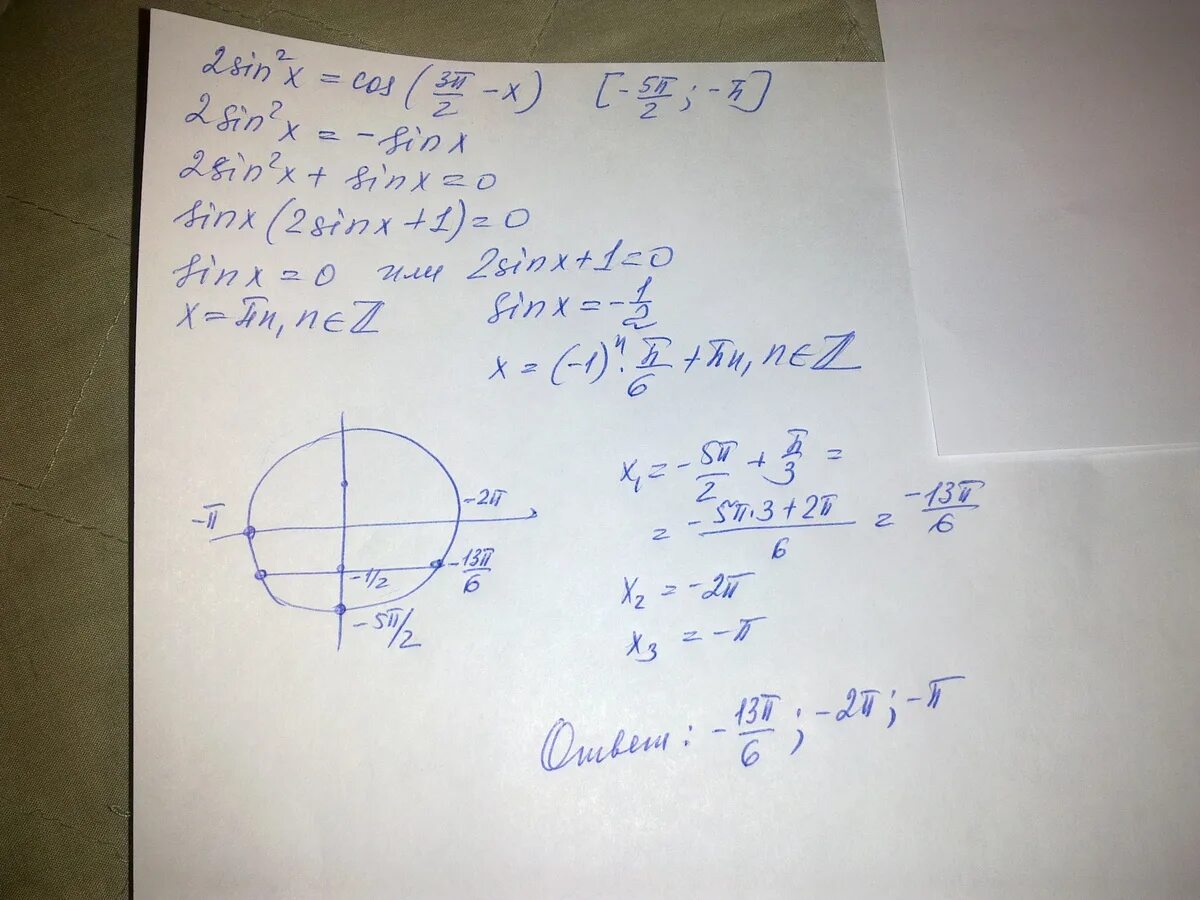 2sin²x = cos(3π/2 - x) [-5π/2; -π]
2sin²x = -sinx
2sin²x + sinx = 0
sinx(2sinx + 1) = 0
sinx = 0 или 2sinx + 1 = 0
x = πn, n∈ℤ sinx = -1/2
x = (-1)ⁿ · π/6 + πn, n∈ℤ
-π
-2π
-1/2
-13π/6
-5π/2
x₁ = -5π/2 + π/3 =
= (-5π·3 + 2π)/6 = -13π/6
x₂ = -2π
x₃ = -π
Ответ: -13π/6; -2π; -π